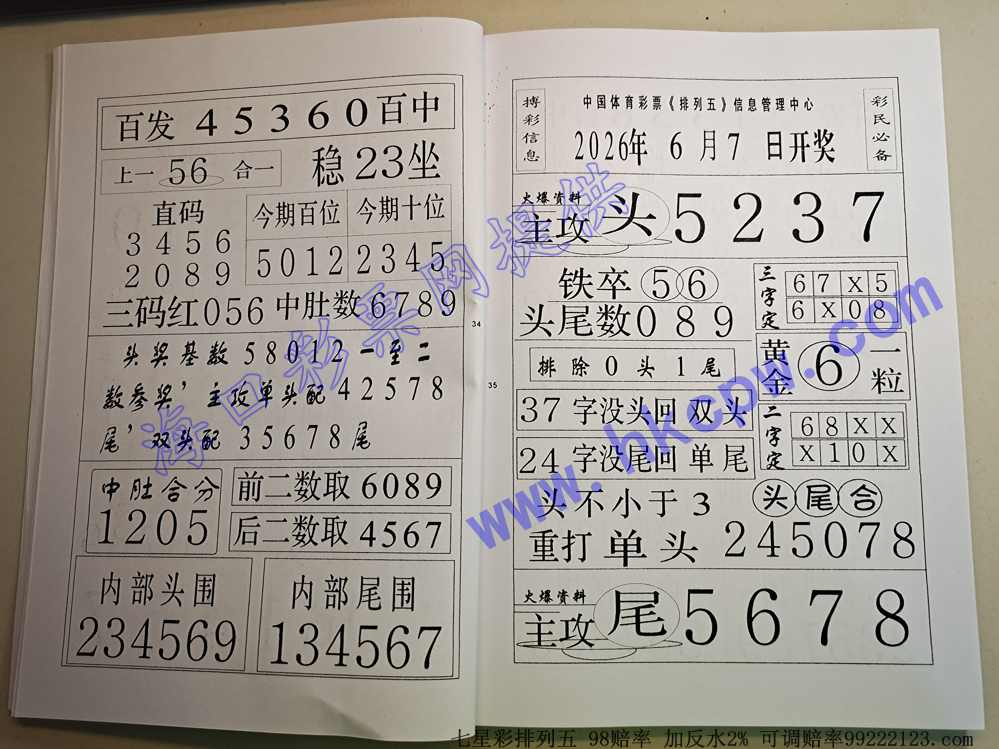 百发 45360 百中
上一 56 合一
稳 23 坐
直码
3456
2089
今期百位
5012
今期十位
2345
三码红056
中肚数6789
头奖基数58012一至二
数参奖’主攻单头配42578
尾’双头配 35678尾
中肚合分
1205
前二数取 6089
后二数取 4567
内部头围
234569
内部尾围
134567
34
35
搏彩信息
中国体育彩票《排列五》信息管理中心
2026年 6月7日开奖
彩民必备
火爆资料
主攻 头 5237
铁卒 56
头尾数089
排除0头1尾
37字没头回双头
24字没尾回单尾
三字定
67X5
6X08
黄金 6 一粒
二字定
68XX
X10X
头不小于3
头尾合
重打单头 245078
火爆资料
主攻 尾 5678
海口彩票网提供
www.hkcpw.com
七星彩排列五 98赔率 加反水2% 可调赔率99222123.com